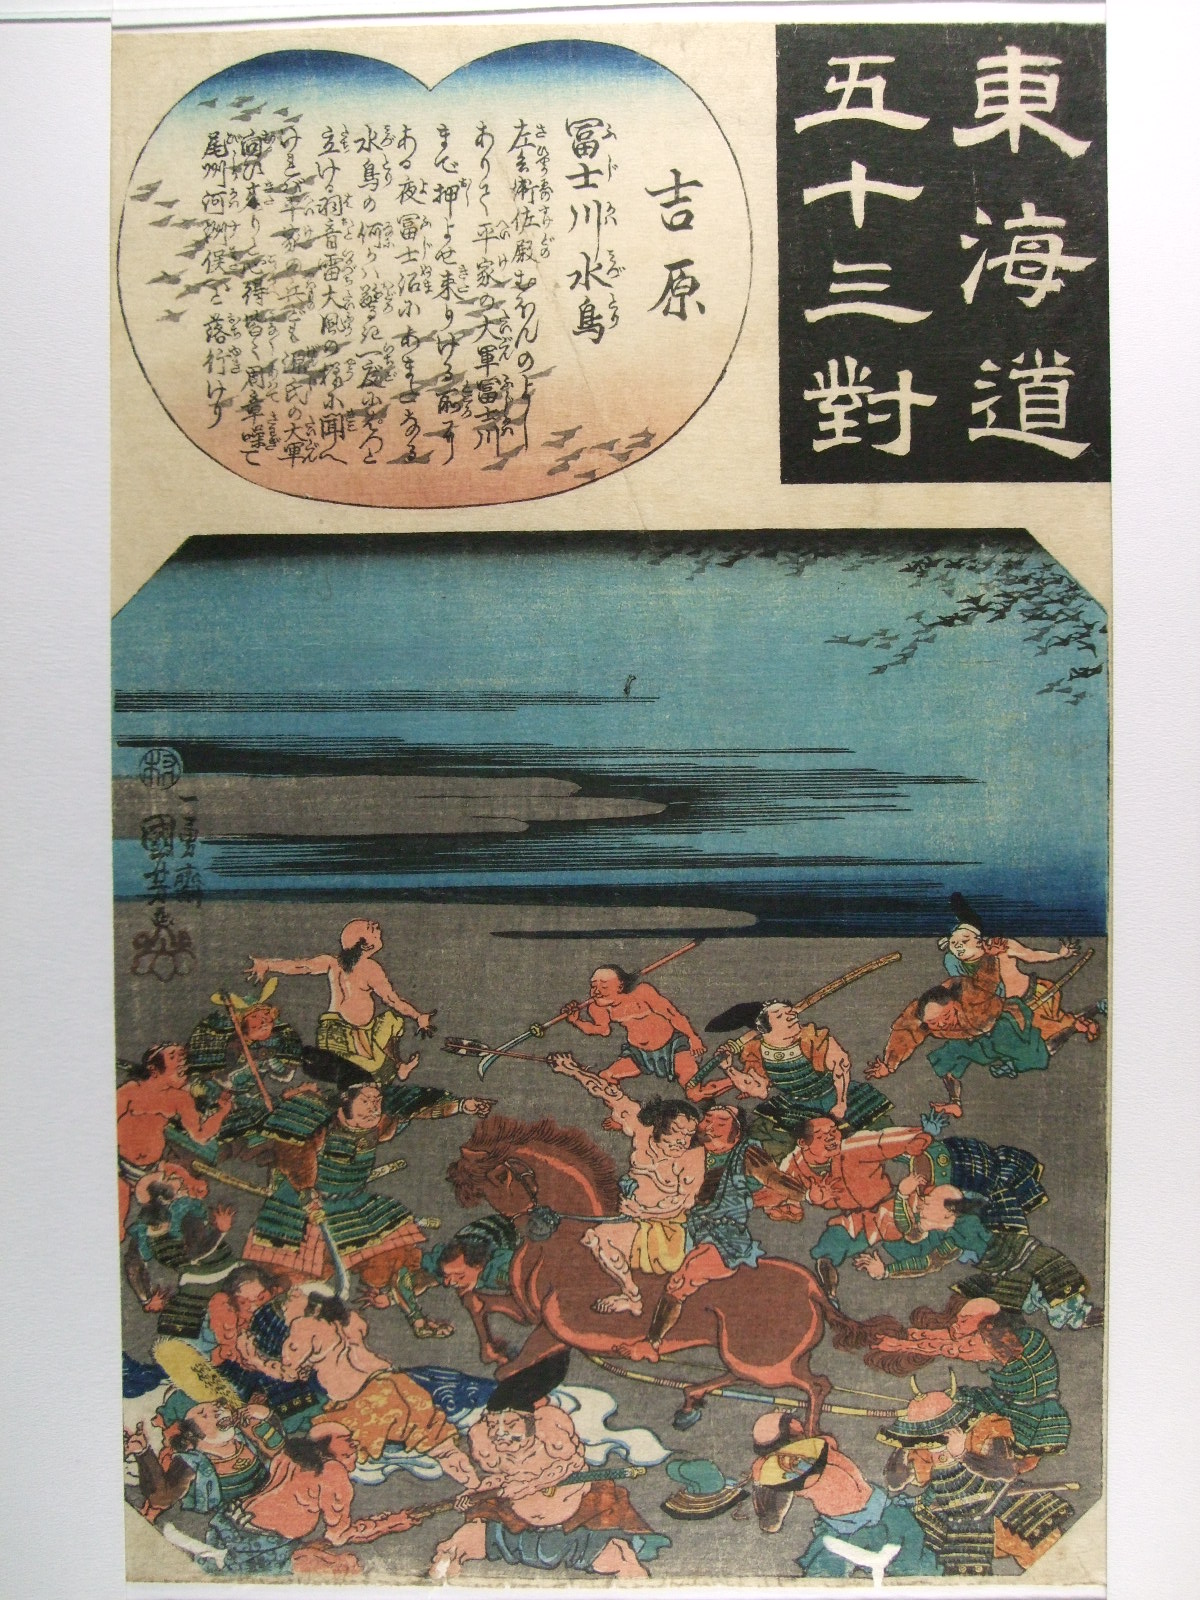 東海道
五十三對
吉原
冨士川水鳥
左兵衛佐殿むほんのよし
ありて平家の大軍冨士川
まで押よせ来りける前より
ある夜冨士沼にあまたなる
水鳥の何かハ驚ed一度にはつと
立ける羽音雷大風の様に聞へ
けれバ平家の兵ども源氏の大軍
向ひ来りと心得皆々周章噪て
尾州河洲俣へと落行けり
一勇齋
國芳画
村